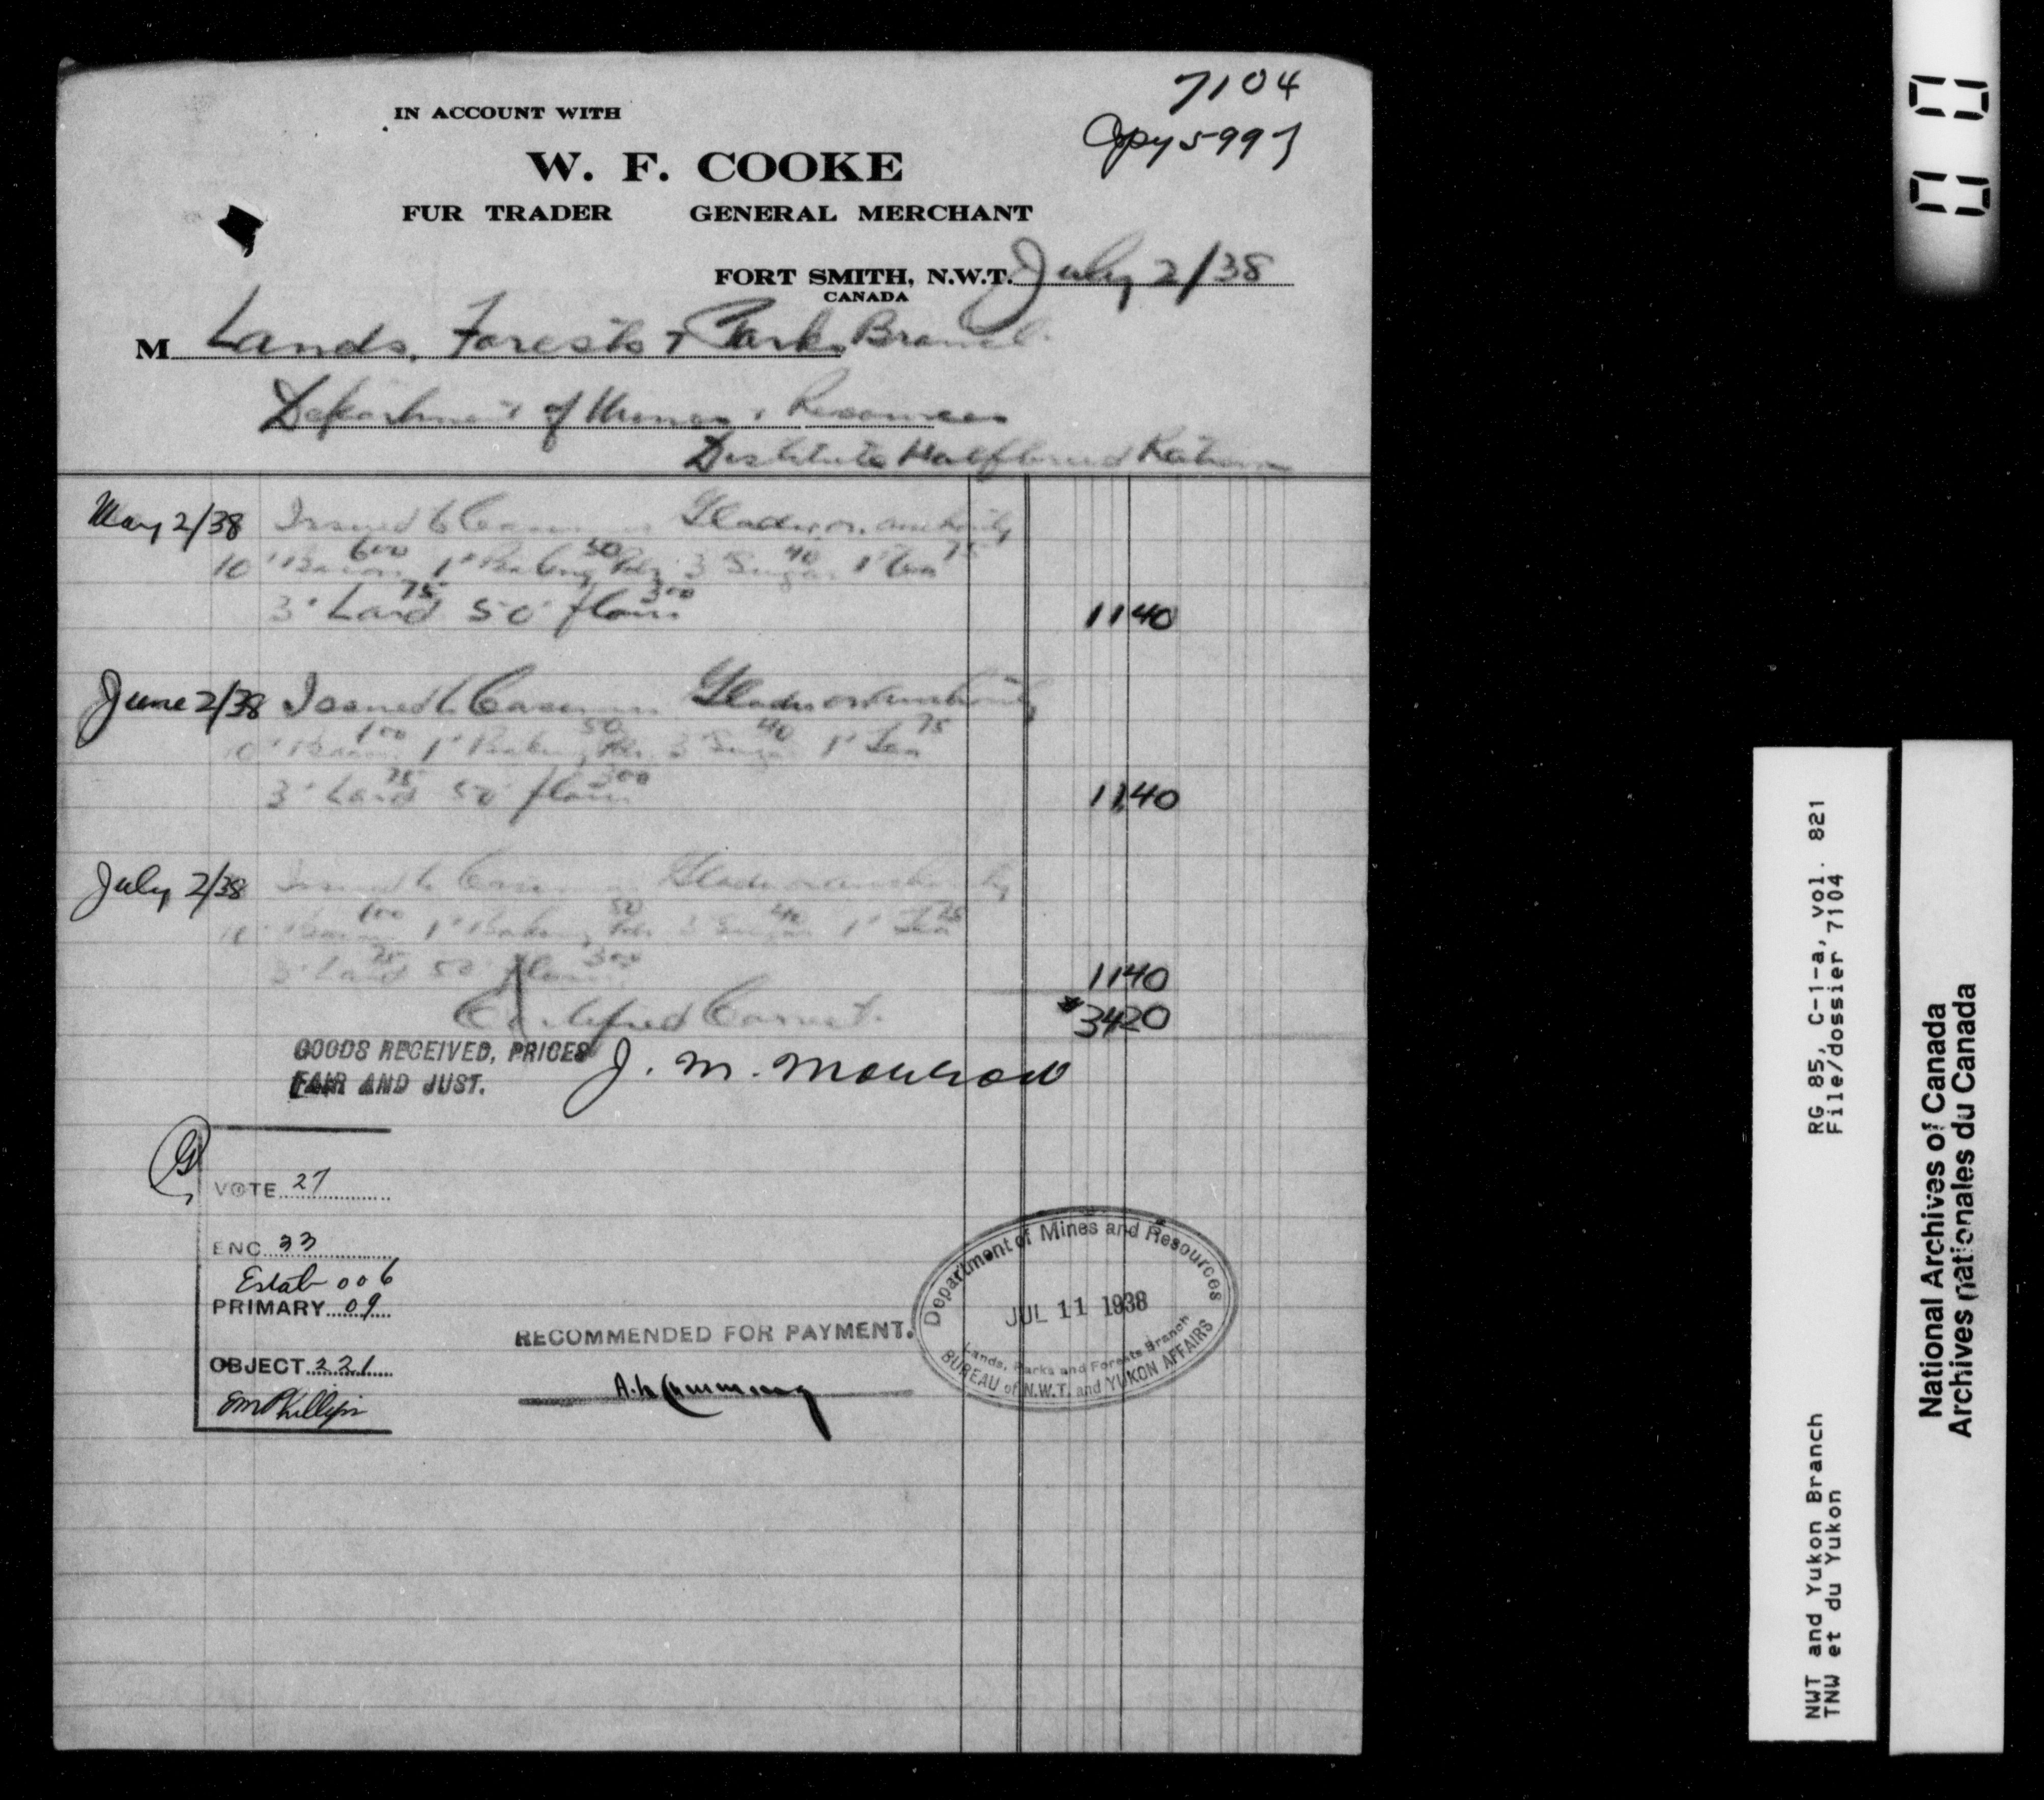 7104
Copy 5997
IN ACCOUNT WITH
W. F. COOKE
FUR TRADER GENERAL MERCHANT
FORT SMITH, N.W.T. July 2/38
CANADA
M Lands, Forests & Parks Branch
Department of Mines & Resources
Destitute Halfbreed Rations
May 2/38 Issued to Gladu on authority
10 Bacon 600 1 Baking Pdr 50 3 Sugar 40 1 Tea 75
3 Lard 75 50 flour 300 1140
June 2/38 Issued to Gladu on authority
10 Bacon 1 Baking Pdr 50 3 Sugar 40 1 Tea 75
3 Lard 75 50 flour 300 1140
July 2/38 Issued to Gladu on authority
Bacon 1 Baking Pdr 50 3 Sugar 40 1 Tea 75
3 Lard 75 50 flour 300 1140
Certified Correct. $3420
GOODS RECEIVED, PRICES
FAIR AND JUST.
J. M.
VOTE 27
ENC 33
Estab 006
PRIMARY 09
OBJECT 221
EM Phillips
RECOMMENDED FOR PAYMENT.
A. Cumming
Department of Mines and Resources
JUL 11 1938
Lands, Parks and Forests Branch
BUREAU of N.W.T. and YUKON AFFAIRS
NWT and Yukon Branch RG 85, C-1-a, vol. 821
TNW et du Yukon File/dossier 7104
National Archives of Canada
Archives nationales du Canada